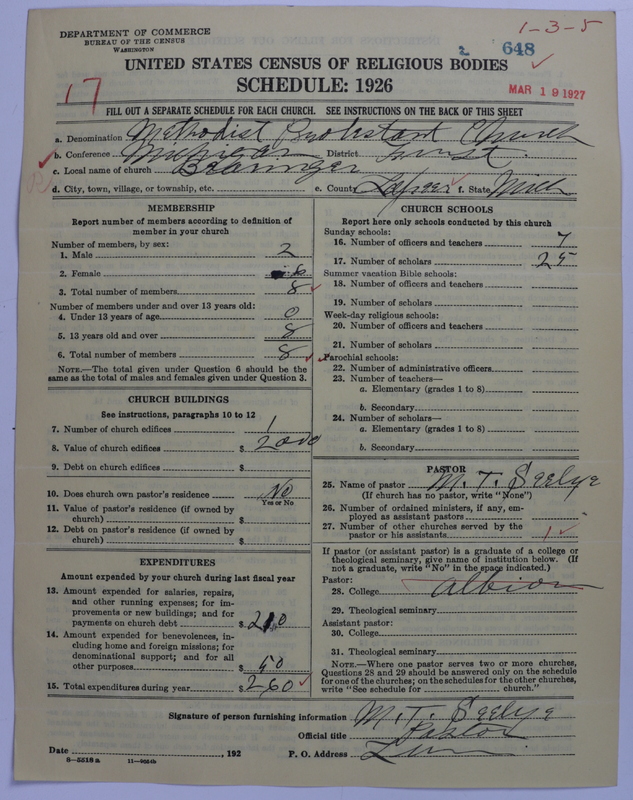 1-3-5
DEPARTMENT OF COMMERCE
BUREAU OF THE CENSUS
WASHINGTON
2 648
UNITED STATES CENSUS OF RELIGIOUS BODIES
SCHEDULE: 1926
17
MAR 19 1927
FILL OUT A SEPARATE SCHEDULE FOR EACH CHURCH. SEE INSTRUCTIONS ON THE BACK OF THIS SHEET
a. Denomination Methodist Protestant Church
b. Conference Michigan District
c. Local name of church
d. City, town, village, or township, etc. e. County Lapeer f. State Mich
MEMBERSHIP
Report number of members according to definition of member in your church
Number of members, by sex:
1. Male 2
2. Female 6
3. Total number of members 8
Number of members under and over 13 years old:
4. Under 13 years of age 0
5. 13 years old and over 8
6. Total number of members 8
NOTE.—The total given under Question 6 should be the same as the total of males and females given under Question 3.
CHURCH BUILDINGS
See instructions, paragraphs 10 to 12
7. Number of church edifices 1
8. Value of church edifices $ 2000
9. Debt on church edifices $
10. Does church own pastor's residence No
Yes or No
11. Value of pastor's residence (if owned by church) $
12. Debt on pastor's residence (if owned by church) $
EXPENDITURES
Amount expended by your church during last fiscal year
13. Amount expended for salaries, repairs, and other running expenses; for improvements or new buildings; and for payments on church debt $ 210
14. Amount expended for benevolences, including home and foreign missions; for denominational support; and for all other purposes $ 50
15. Total expenditures during year $ 260
CHURCH SCHOOLS
Report here only schools conducted by this church
Sunday schools:
16. Number of officers and teachers 7
17. Number of scholars 25
Summer vacation Bible schools:
18. Number of officers and teachers
19. Number of scholars
Week-day religious schools:
20. Number of officers and teachers
21. Number of scholars
Parochial schools:
22. Number of administrative officers
23. Number of teachers—
a. Elementary (grades 1 to 8)
b. Secondary
24. Number of scholars—
a. Elementary (grades 1 to 8)
b. Secondary
PASTOR
25. Name of pastor M. T. Seelye
(If church has no pastor, write "None")
26. Number of ordained ministers, if any, employed as assistant pastors
27. Number of other churches served by the pastor or his assistants 1
If pastor (or assistant pastor) is a graduate of a college or theological seminary, give name of institution below. (If not a graduate, write "No" in the space indicated.)
Pastor:
28. College Albion
29. Theological seminary
Assistant pastor:
30. College
31. Theological seminary
NOTE.—Where one pastor serves two or more churches, Questions 28 and 29 should be answered only on the schedule for one of the churches; on the schedules for the other churches, write "See schedule for church."
Signature of person furnishing information M. T. Seelye
Official title Pastor
Date , 192 P. O. Address
8-5518 a 11-9554b